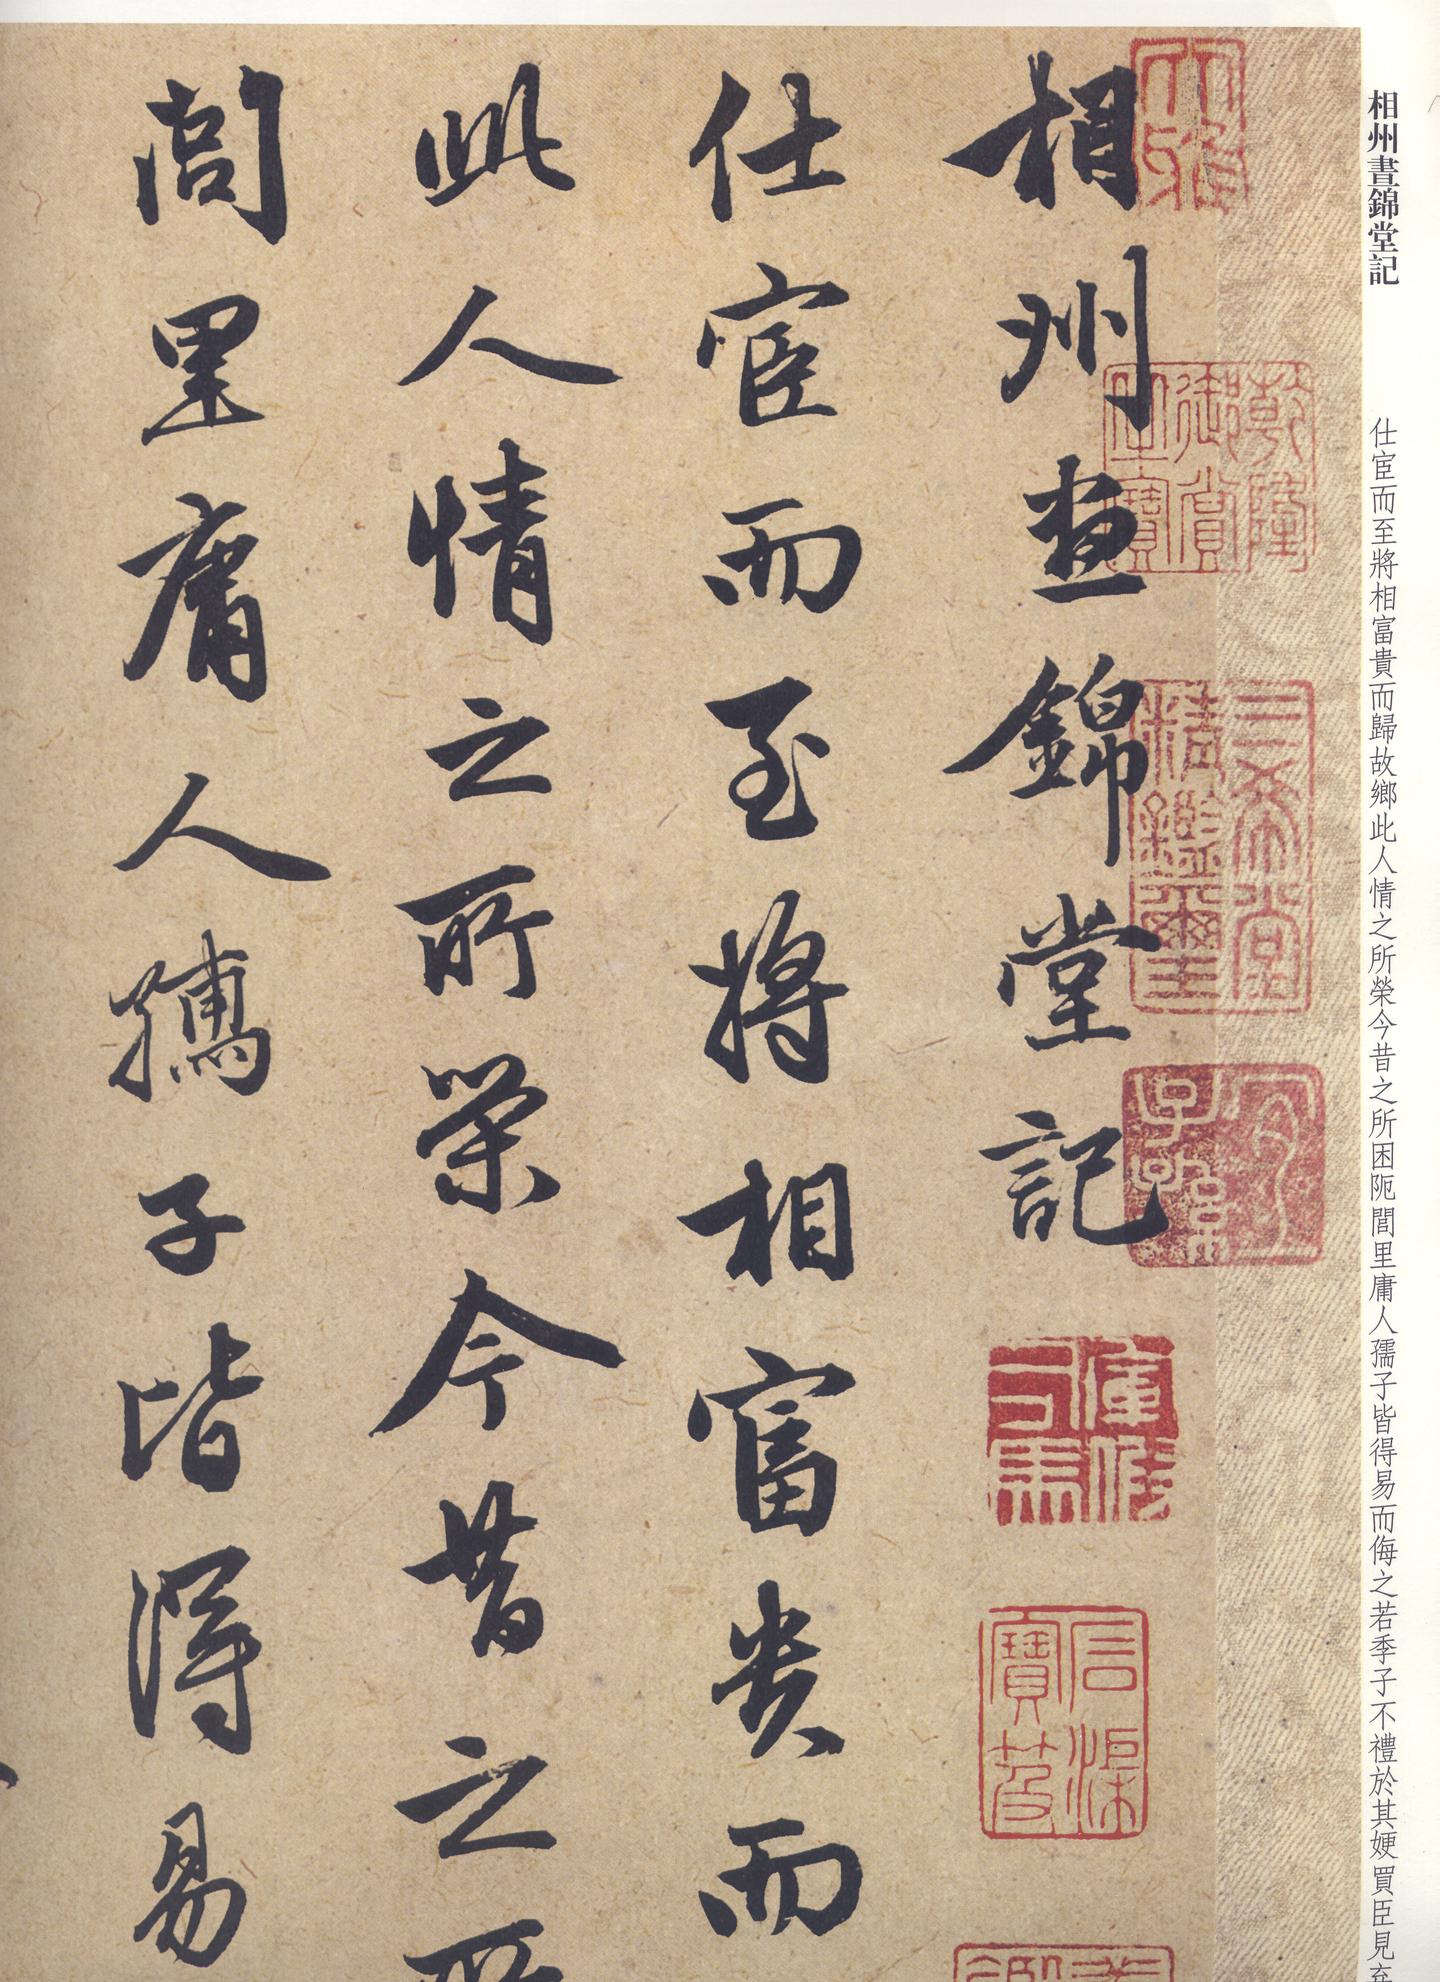 相州晝錦堂記
仕宦而至將相富貴而歸故鄉此人情之所榮今昔之所困阨閭里庸人孺子皆得易而侮之若季子不禮於其㛐買臣見
乾隆
御賞
之寶
三希堂
精鑑璽
宜
子孫
信
寶
相州晝錦堂記
仕宦而至將相富貴而
此人情之所榮今昔之所
閭里庸人孺子皆得易